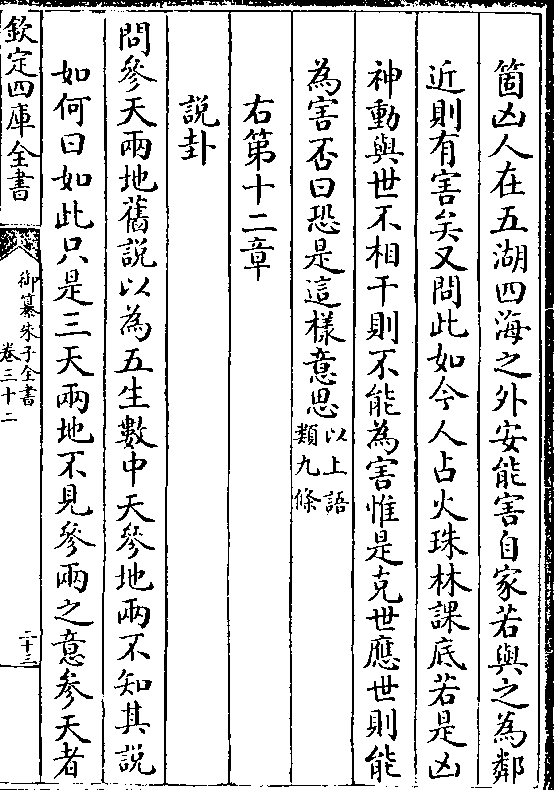 箇凶人在五湖四海之外安能害自家若與之為鄰
近則有害矣又問此如今人占火珠林課底若是凶
神動與世不相干則不能為害惟是克世應世則能
為害否曰恐是這樣意思以上語
類九條
右第十二章
說卦
問參天兩地舊說以為五生數中天參地兩不知其說
如何曰如此只是三天兩地不見參兩之意參天者
欽定四庫全書
御纂朱子全書
卷三十二
二十三